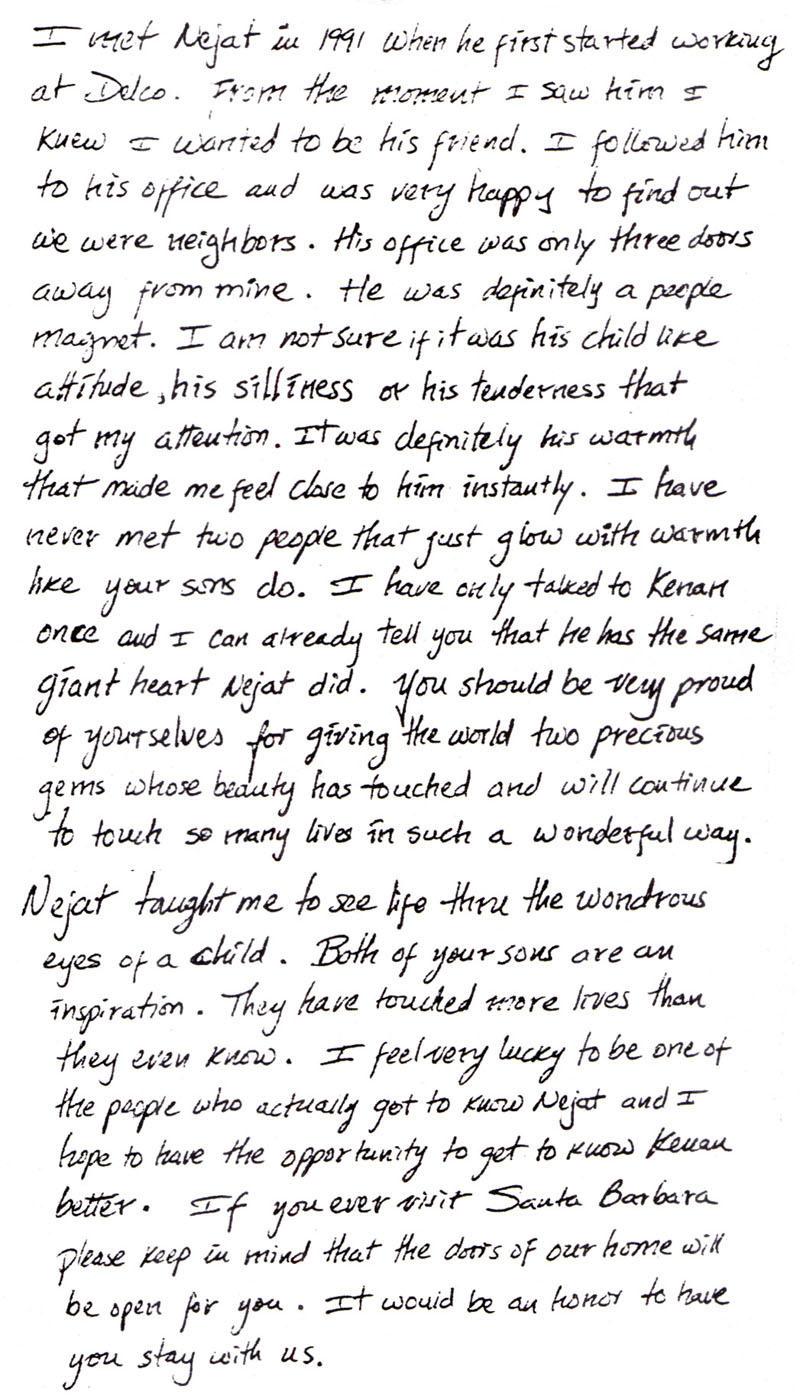 I met Nejat in 1991 when he first started working
at Delco. From the moment I saw him I
knew I wanted to be his friend. I followed him
to his office and was very happy to find out
we were neighbors. His office was only three doors
away from mine. He was definitely a people
magnet. I am not sure if it was his child like
attitude, his silliness or his tenderness that
got my attention. It was definitely his warmth
that made me feel close to him instantly. I have
never met two people that just glow with warmth
like your sons do. I have only talked to Kenan
once and I can already tell you that he has the same
giant heart Nejat did. You should be very proud
of yourselves for giving the world two precious
gems whose beauty has touched and will continue
to touch so many lives in such a wonderful way.
Nejat taught me to see life thru the wondrous
eyes of a child. Both of your sons are an
inspiration. They have touched more lives than
they even know. I feel very lucky to be one of
the people who actually got to know Nejat and I
hope to have the opportunity to get to know Kenan
better. If you ever visit Santa Barbara
please keep in mind that the doors of our home will
be open for you. It would be an honor to have
you stay with us.